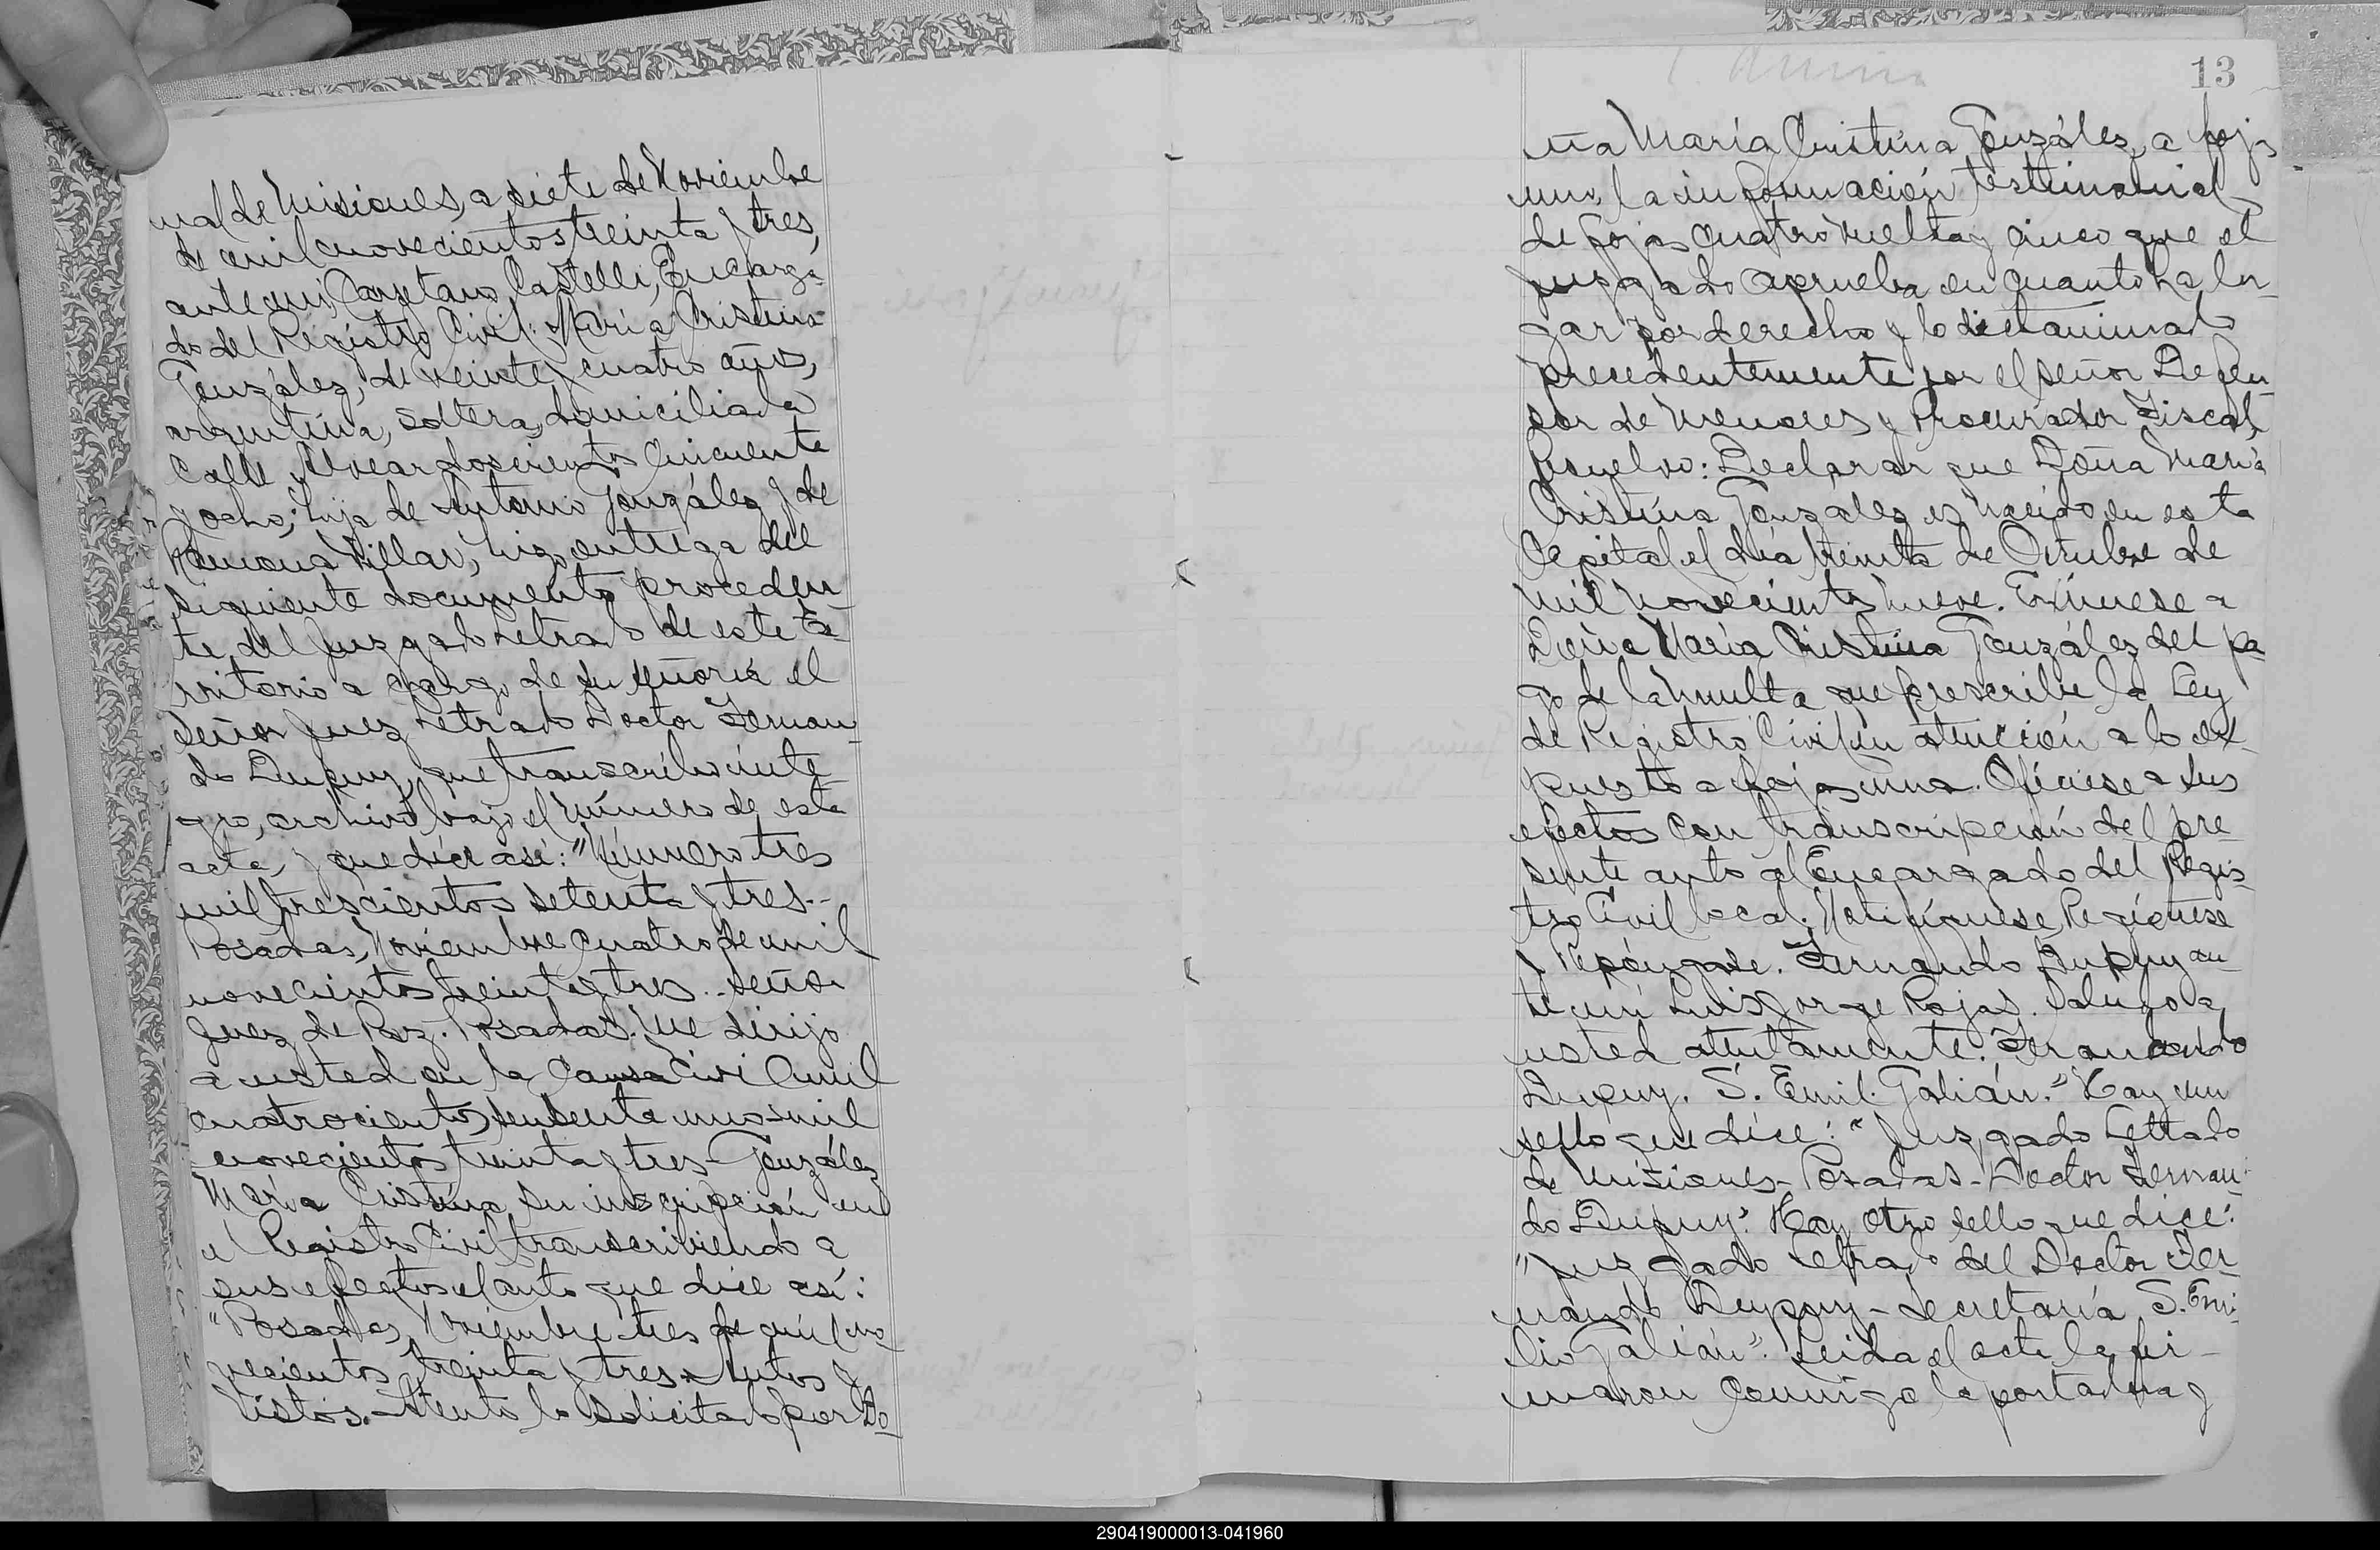 nal de Misiones, a siete de Noviembre
de mil novecientos treinta y tres,
ante mi, Cayetano Castelli, Encarga-
do del Registro Civil: María Cristina
González, de veinte y cuatro años,
argentina, soltera, domiciliada
Calle Alvear doscientos cincuenta
y ocho; hija de Antonio González y de
Ramona Villar, hizo entrega del
siguiente documento proceden-
te del Juzgado Letrado de este te-
rritorio a cargo de su señoría el
señor Juez Letrado Doctor Fernan-
do Dupuy, que transcribo ínte-
gro, archivo bajo el número de esta
acta, y que dice así: "Número tres
mil trescientos setenta y tres.-
Posadas, Noviembre cuatro de mil
novecientos treinta y tres.- Señor
Juez de Paz. Posadas. Me dirijo
a usted en la causa Civil mil
cuatrocientos sesenta uno-mil
novecientos treinta y tres - González
María Cristina su inscripción en
el Registro Civil transcribiendo a
sus efectos el auto que dice así:
"Posadas, Noviembre tres de mil no-
vecientos treinta y tres. Autos y
Vistos. Atento lo solicitado por Do-
13
ña María Cristina González, a fojas
uno, la información testimonial
de fojas cuatro vuelta y cinco que el
Juzgado aprueba en cuanto ha lu-
gar por derecho y lo dictaminado
precedentemente por el señor Defen-
sor de Menores y Procurador Fiscal,
Resuelvo: Declarar que Doña María
Cristina González es nacida en esta
Capital el día treinta de Octubre de
mil novecientos nueve. Exímese a
Doña María Cristina González del pa-
go de la multa que prescribe la Ley
de Registro Civil en atención a lo ex-
puesto a fojas una. Ofíciese a sus
efectos con transcripción del pre-
sente auto al Encargado del Regis-
tro Civil local. Notifíquese, Regístrese
y Repóngase. Fernando Dupuy an-
te mí Luis Jorge Rojas. Saludo a
usted atentamente. Fernando
Dupuy. S. Emil. Galián." Hay un
sello que dice: "Juzgado Letrado
de Misiones - Posadas - Doctor Fernan-
do Dupuy". Hay otro sello que dice:
"Juzgado Letrado del Doctor Fer-
nando Dupuy - Secretaría S. Emi-
lio Galián". Leida el acta la fir-
maron conmigo la portadora y
290419000013-041960